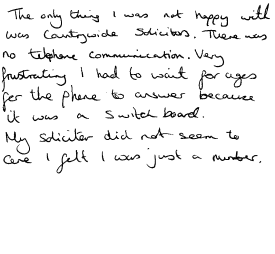 The only thing I was not happy with
was Countrywide Solicitors. There was
no telphone communication. Very
frustrating I had to wait for ages
for the phone to answer because
it was a switch board.
My soliciter did not seem to
care I felt I was just a number.